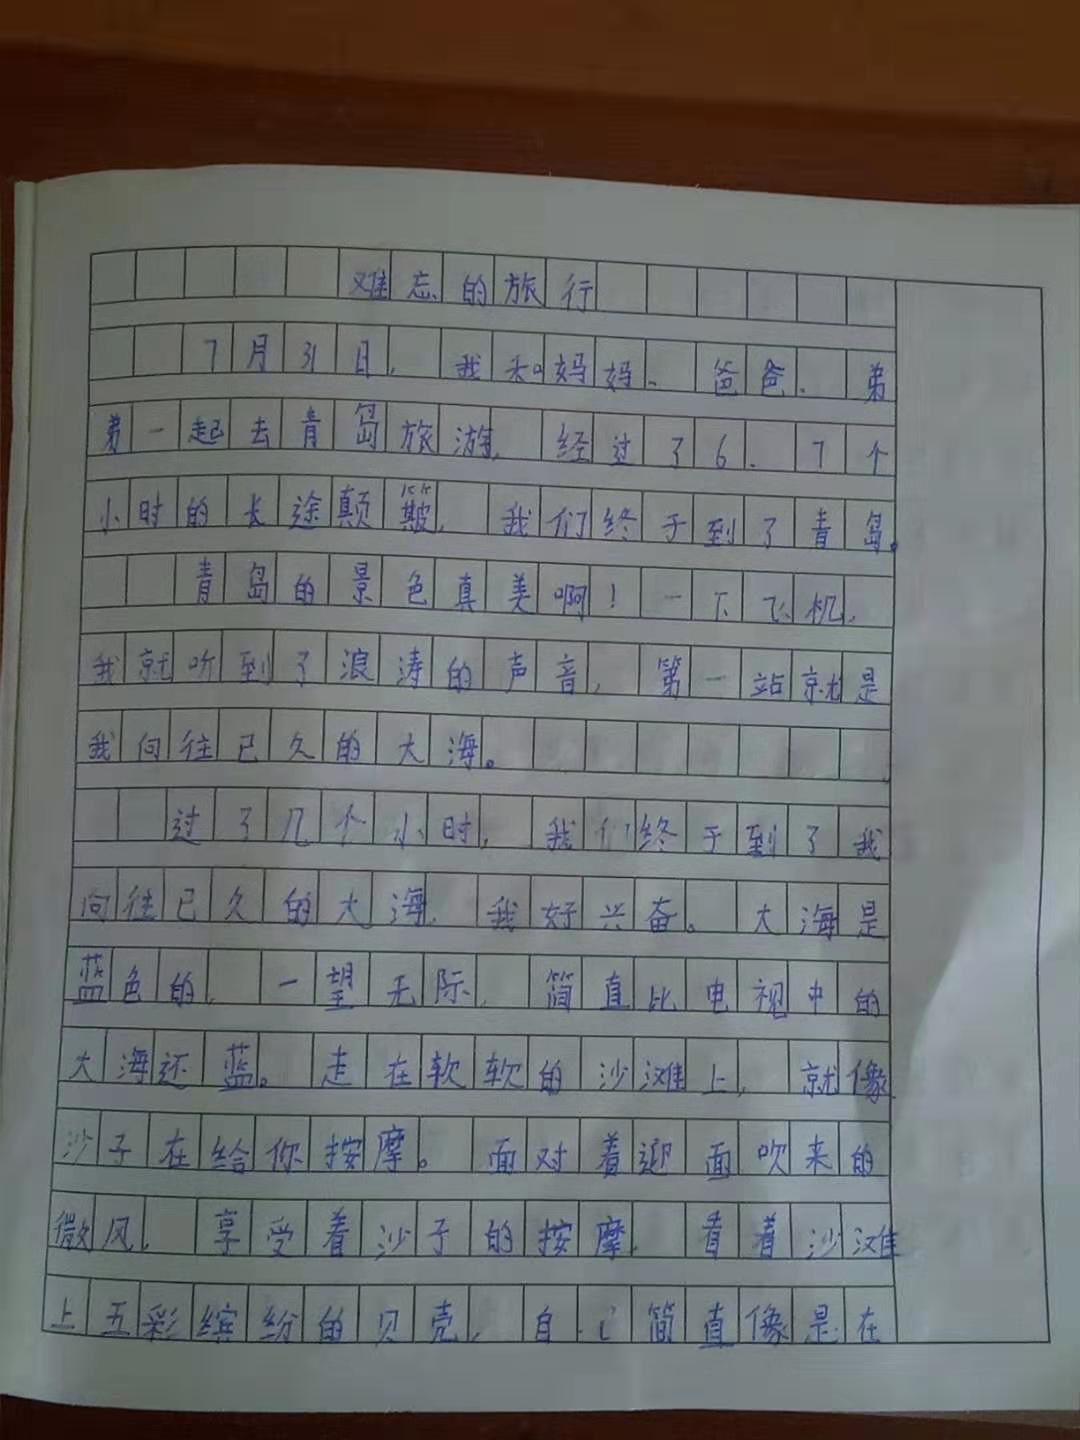 难忘的旅行
7月31日，我和妈妈、爸爸、弟
弟一起去青岛旅游，经过了6、7个
小时的长途颠簸，我们终于到了青岛。
青岛的景色真美啊！一下飞机，
我就听到了浪涛的声音，第一站就是
我向往已久的大海。
过了几个小时，我们终于到了我
向往已久的大海，我好兴奋。大海是
蓝色的，一望无际，简直比电视中的
大海还蓝。走在软软的沙滩上，就像
沙子在给你按摩。面对着迎面吹来的
微风，享受着沙子的按摩，看着沙滩
上五彩缤纷的贝壳，自己简直像是在